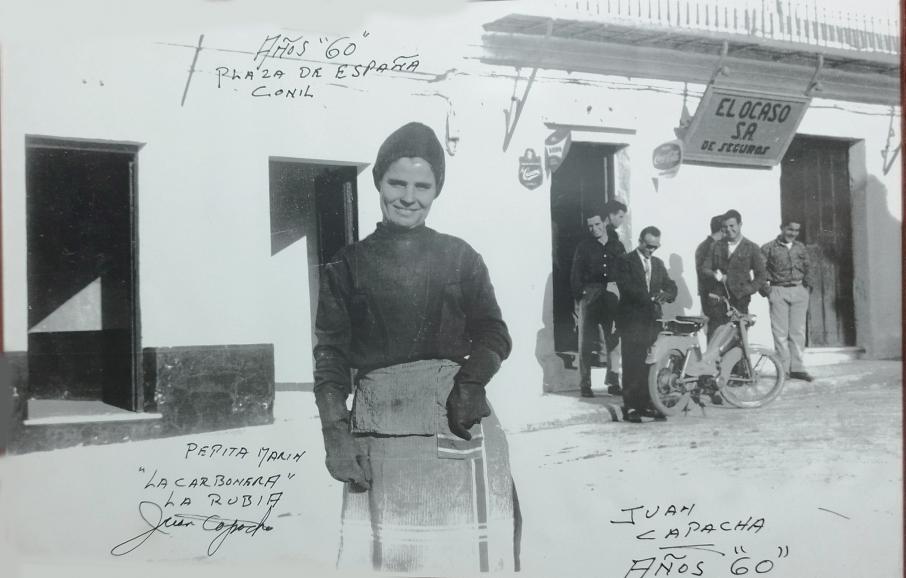 AÑOS "60"
PLAZA DE ESPAÑA
CONIL
EL OCASO
S.A.
DE SEGUROS
PEPITA MARIN
"LA CARBONERA"
LA RUBIA
Juan Capacha
JUAN
CAPACHA
AÑOS "60"